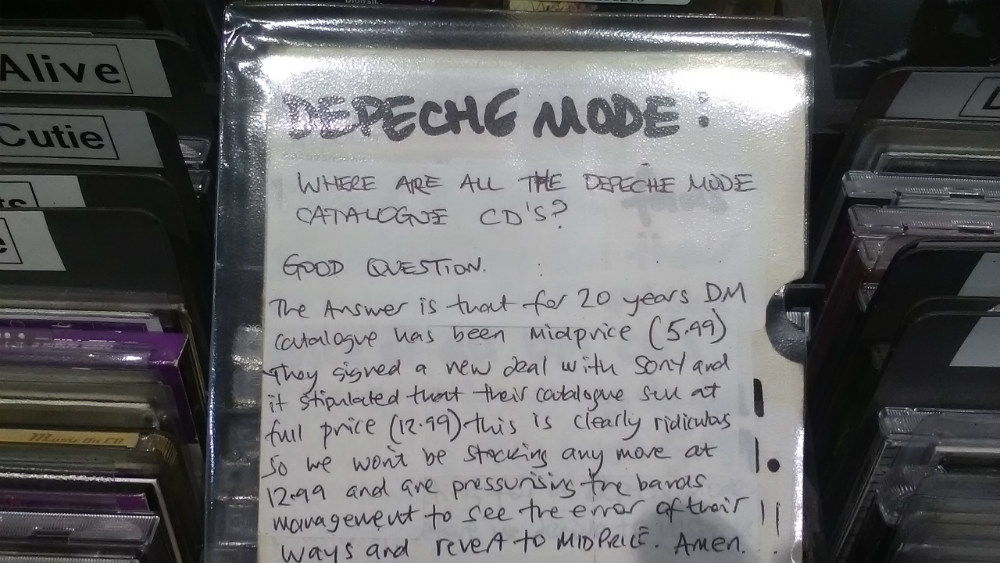 Alive
Cutie
DEPECHE MODE:
WHERE ARE ALL THE DEPECHE MODE
CATALOGUE CD'S?
GOOD QUESTION.
The Answer is that for 20 years DM
catalogue has been midprice (5.99)
They signed a new deal with Sony and
it stipulated that their catalogue sell at
full price (12.99) this is clearly ridiculas
so we won't be stocking any more at
12.99 and are pressurising the bands
management to see the error of their
ways and revert to MIDPRICE. Amen.
Music On CD